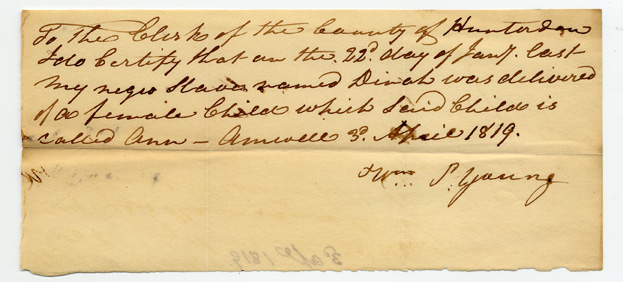 To The Clerk of the County of Hunterdon
I do Certify that on the 22d. day of Jany. last
my negro Slave named Dinah was delivered
of a female Child which said Child is
called Ann – Amwell 3d. April 1819.
Wm. S. Young
3d Apl 1819